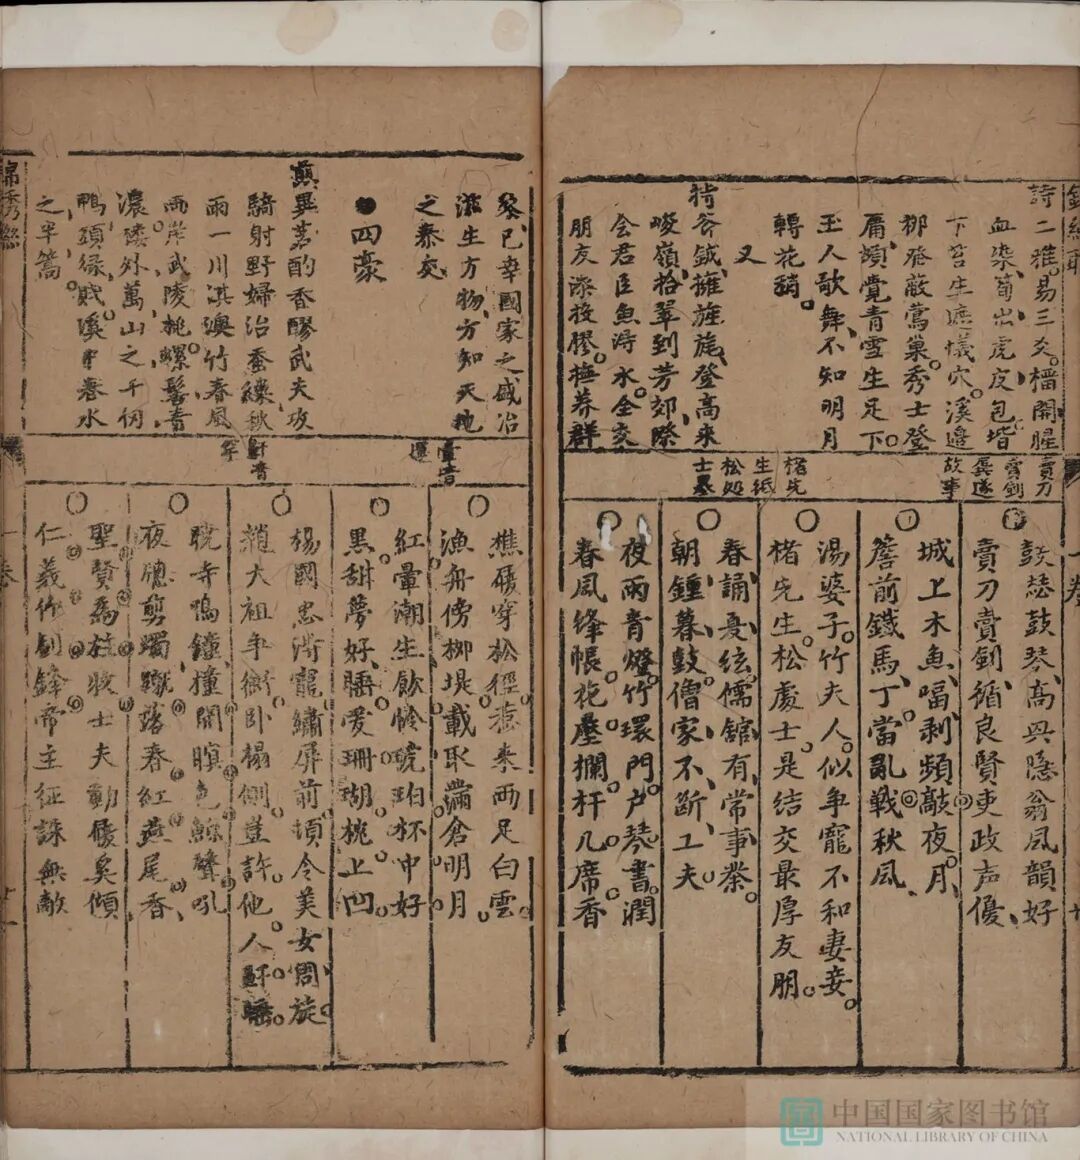 詩二雅。易三爻。檣開腥
血染、荀出虎皮包堦
下苔生遮蟻穴。溪邊
柳發蔽鶯巢。秀士登
肩、頻覺青雪生足下。
玉人歌舞、不知明月
轉花稍。
又
斧鉞、擁旌旄、登高來
峻嶺、拾翠到芳郊、際
会君臣魚得水。全交
朋友漆投膠。撫养群
賣刀
賣劍
龔遂
故事
楮先
生紙
松処
士墨
鼓瑟鼓琴、高興隐翁風韻好
賣刀賣劍、循良賢吏政声優、
城上木魚、嘓剥頻敲夜月、
簷前鐵馬、丁當亂戰秋風
湯婆子。竹夫人。似争寵不和妻妾。
楮先生。松處士。是結交最厚友朋。
春誦夏絃、儒舘有常事業。
朝鍾暮鼓。僧家不断工夫
夜雨青燈。竹環門户琴書潤
春風絳帳。花塵欄杆几席香
癸巳幸國家之盛治
滋生方物、方知天地
之泰交
●四豪
異茗酌香醪武夫攻
騎射野婦治蚕繰秋
雨一川淇澳竹春風
兩岸武陵桃螺髻青
濃矮外萬山之千仞
鴨頭緑賦。溪中春水
之半篙。
樵屐穿松徑。惹來兩足白雲。
漁舟傍柳堤載取滿倉明月。
紅暈潮生飲怜琥珀杯中好
黑甜夢好、睡愛珊瑚枕上凹
楊國忠得寵、繡屏前、頃令美女周旋。
趙大祖争衡臥榻側豈許他人鼾睡。
晓寺鳴鐘、撞開暝色鯨聲吼
夜牕剪燭、蹴落春紅燕尾香、
聖賢為 士夫動屐奚傾
仁義作劍鋒帝主征誅無敵
中国国家图书馆
NATIONAL LIBRARY OF CHINA